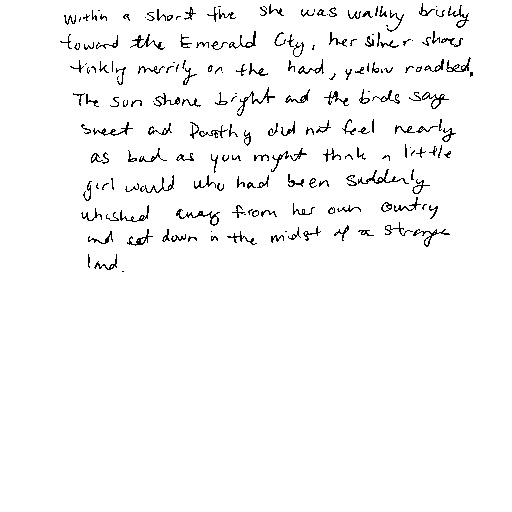 within a short time she was walking briskly
toward the Emerald City, her silver shoes
tinkling merrily on the hard, yellow roadbed.
The sun shone bright and the birds sang
sweet and Dorothy did not feel nearly
as bad as you might think a little
girl would who had been suddenly
whisked away from her own country
and set down in the midst of a strange
land.